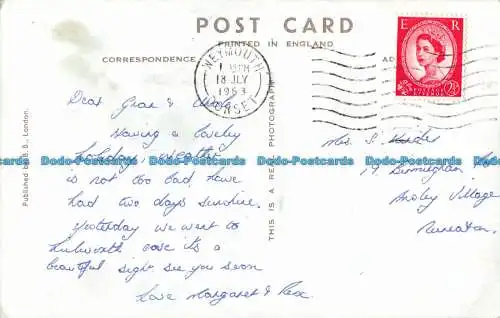 POST CARD
PRINTED IN ENGLAND
CORRESPONDENCE
AD
E R
POSTAGE
2½
WEYMOUTH
PM
18 JLY
1963
DORSET
Dear Grace &
Having a lovely
holiday weather
is not too bad, have
had two days sunshine.
Yesterday we went to
Lulworth cove its a
beautiful sight see you soon
Love Margaret & Rex.
Mrs. S.
Birmingham
Ansley Village
Nuneaton.
THIS IS A REAL PHOTOGRAPH
Published by B.B., London.
Dodo-Postcards Dodo-Postcards Dodo-Postcards Dodo-Postcards Dodo-Postcards